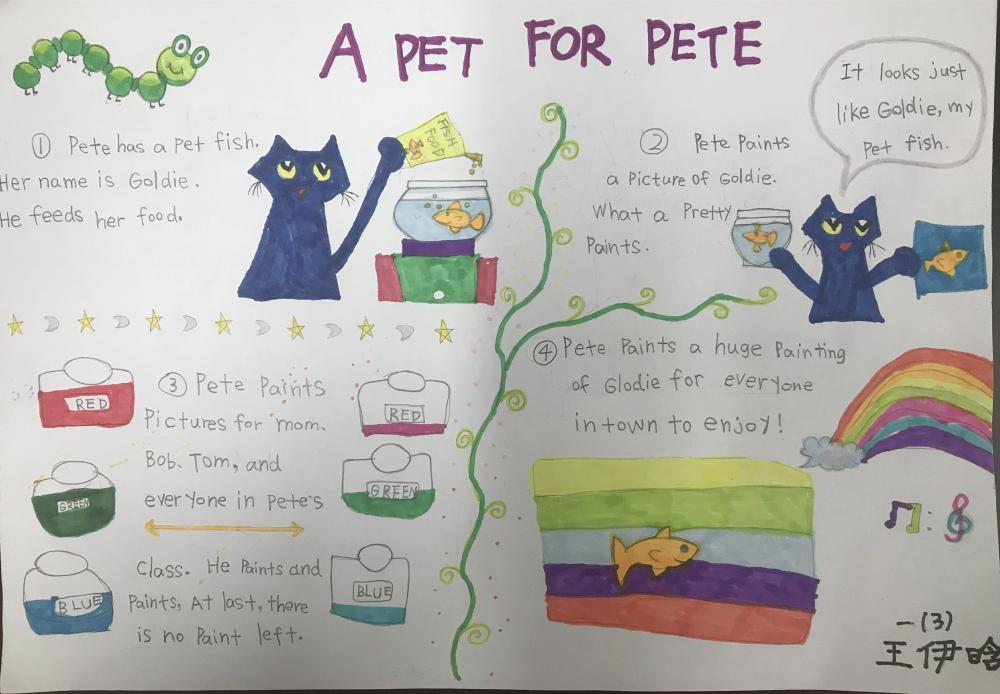 A PET FOR PETE
① Pete has a pet fish.
Her name is Goldie.
He feeds her food.
FISH
FOOD
② Pete Paints
a Picture of Goldie.
What a Pretty
Paints.
It looks just
like Goldie, my
Pet fish.
③ Pete Paints
Pictures for mom.
Bob. Tom, and
everyone in Pete's
Class. He Paints and
Paints, At last, there
is no Paint left.
RED
GREEN
BLUE
RED
GREEN
BLUE
④ Pete Paints a huge Painting
of Glodie for everyone
in town to enjoy!
一(3)
王伊晗